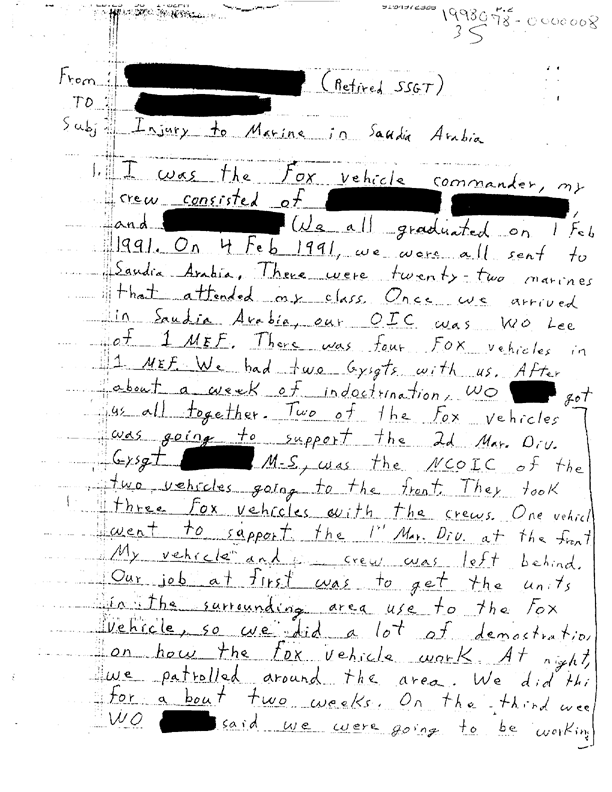 1993078-0000008
35
From: (Retired SSGT)
TO:
Subj: Injury to Marine in Saudia Arabia
1. I was the Fox vehicle commander, my
crew consisted of
and (We all graduated on 1 Feb
1991. On 4 Feb 1991, we were all sent to
Saudia Arabia. There were twenty-two marines
that attended my class. Once we arrived
in Saudia Arabia, our OIC was WO Lee
of 1 MEF. There was four Fox vehicles in
1 MEF. We had two Gysgts with us. After
about a week of indoctrination, WO got
us all together. Two of the Fox vehicles
was going to support the 2d Mar. Div.
Gysgt M-S, was the NCOIC of the
two vehicles going to the front. They took
three Fox vehicles with the crews. One vehicl
went to support the 1st Mar. Div. at the front
My vehicle and crew was left behind.
Our job at first was to get the units
in the surrounding area use to the Fox
vehicle, so we did a lot of demostratio
on how the Fox vehicle work. At night,
we patrolled around the area. We did thi
for a bout two weeks. On the third wee
WO said we were going to be working